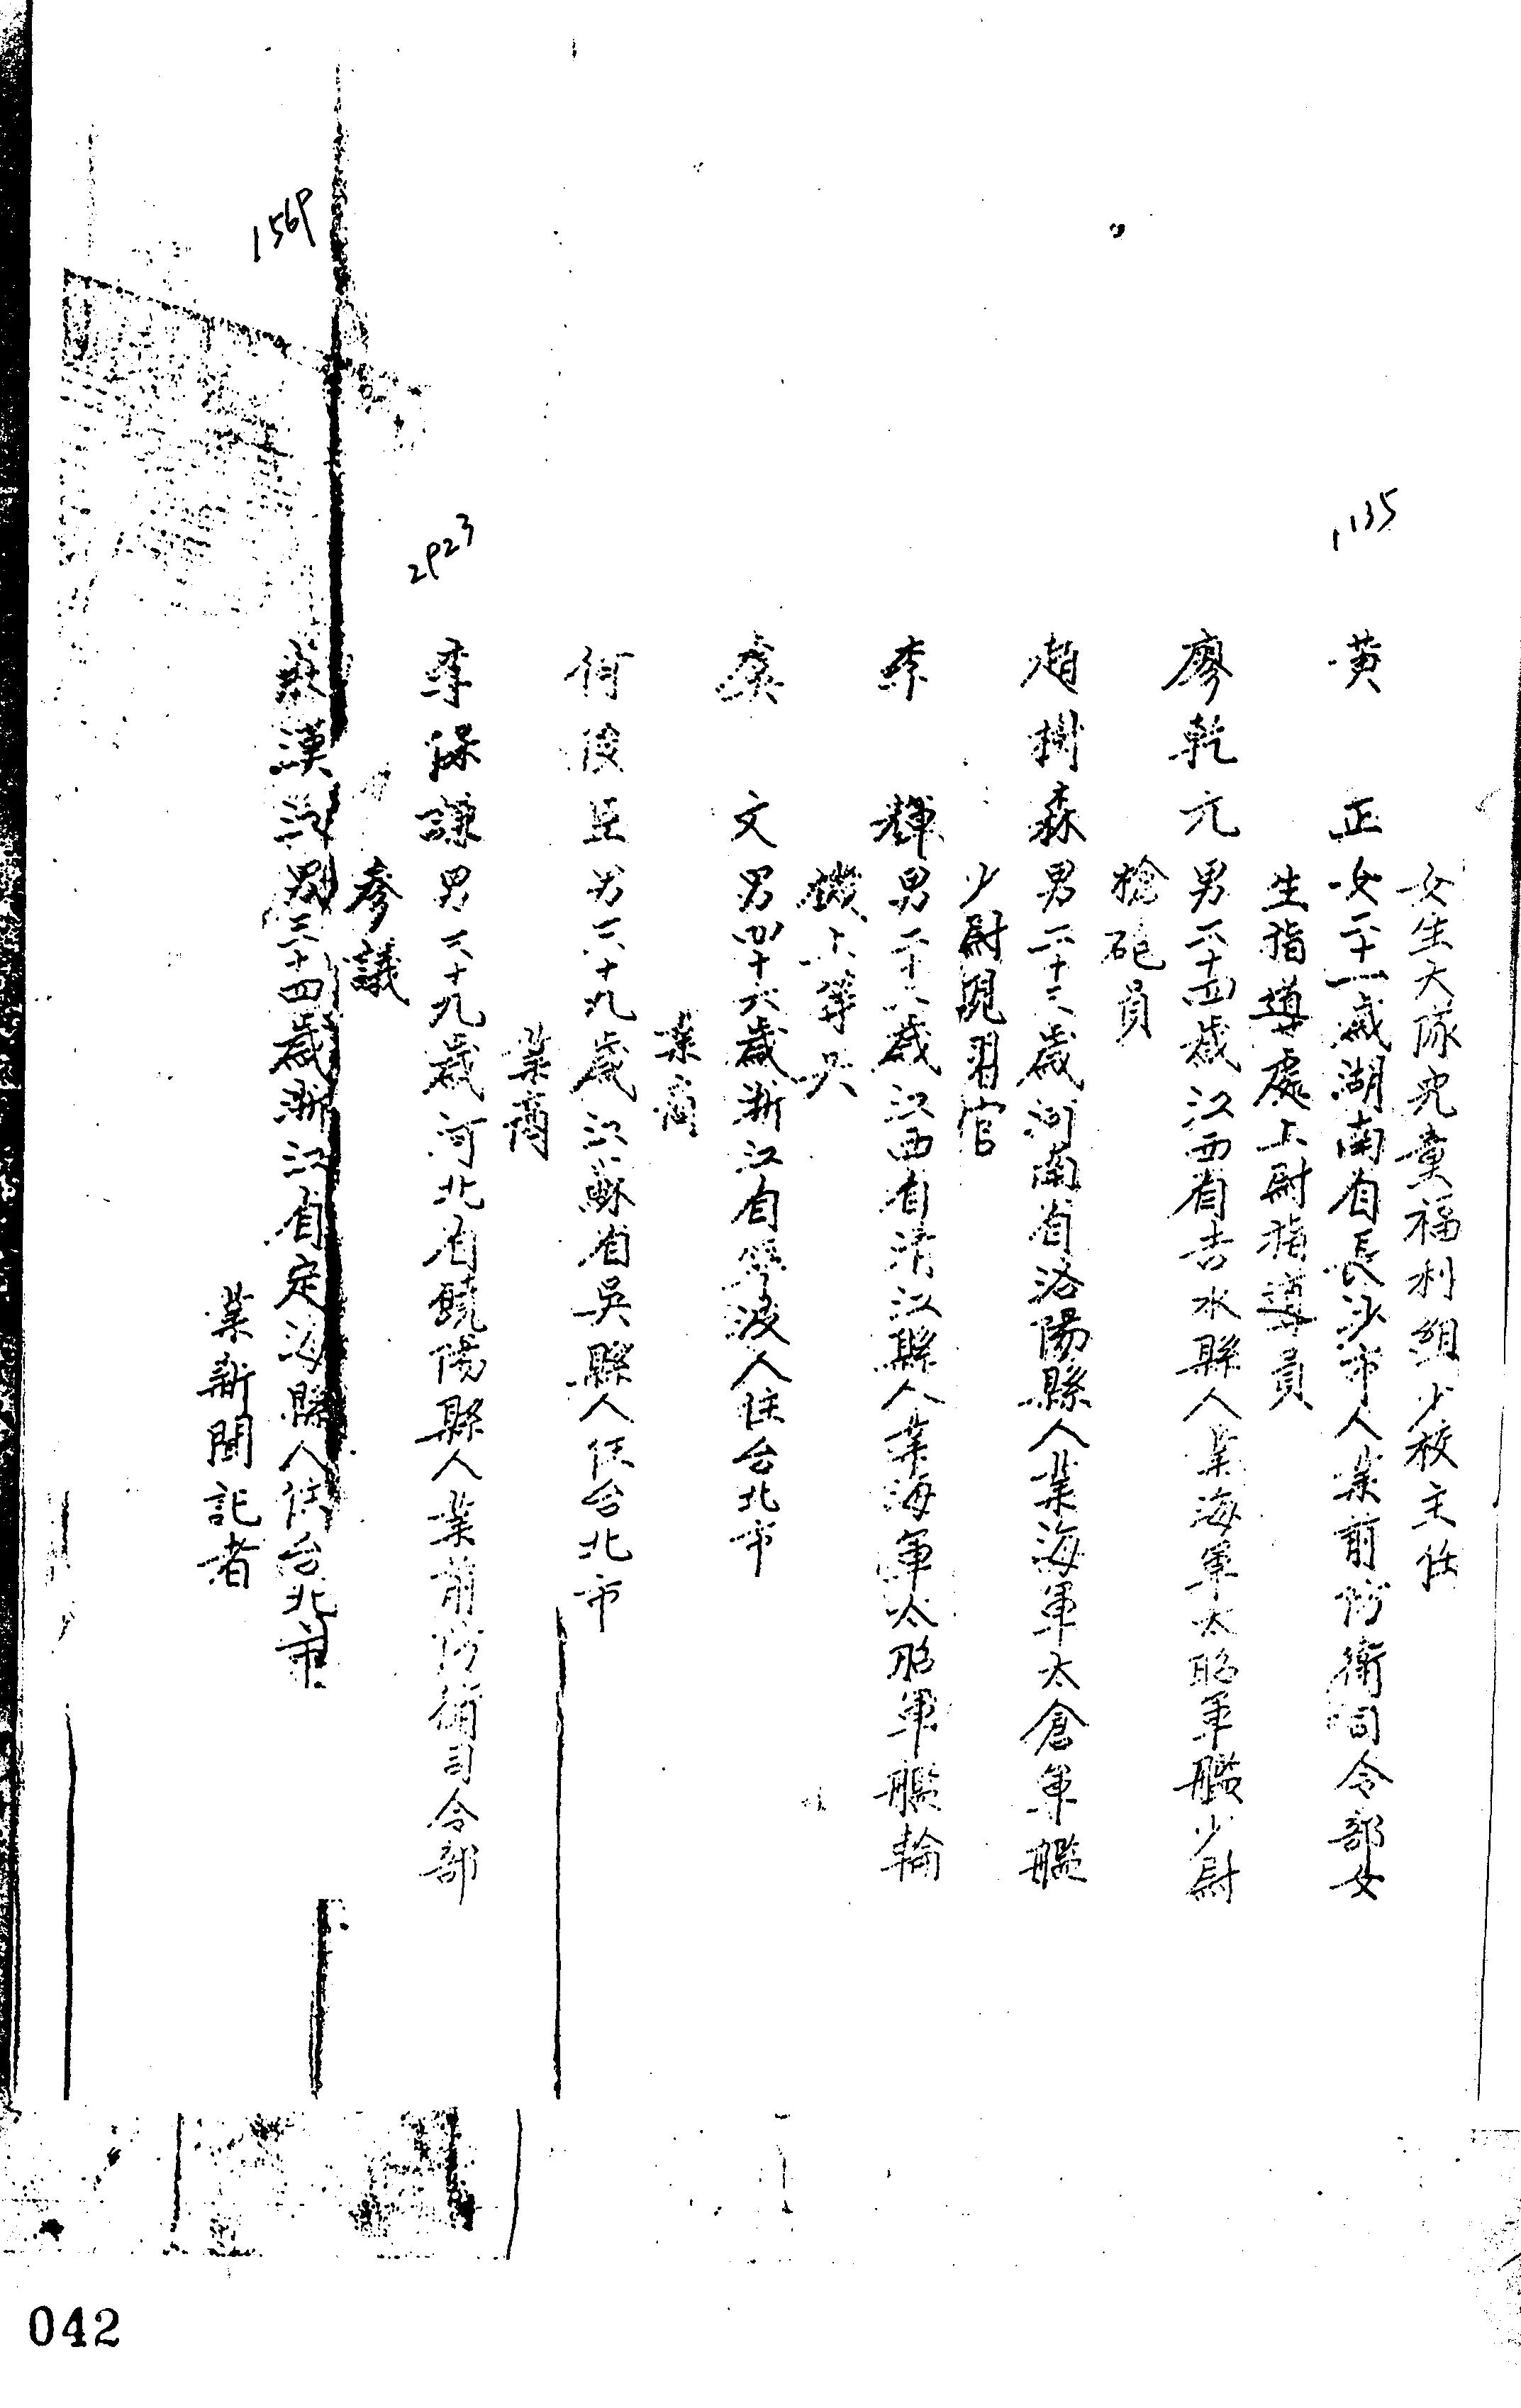 女生大隊兒童福利組少校主任
1135
黃 正女二十一歲湖南省長沙市人業前防衛司令部女
生指導處上尉指導員
廖乾元男二十四歲江西省吉水縣人業海軍太昭軍艦少尉
槍砲員
趙樹森男二十三歲河南省洛陽縣人業海軍太倉軍艦
少尉見習官
李 輝男二十六歲江西省清江縣人業海軍太昭軍艦輪
機上等兵
虞 文男四十六歲浙江省寧波人住台北市
業商
何俊臣男三十九歲江蘇省吳縣人住台北市
業商
2923
李保謙男三十九歲河北省饒陽縣人業前防衛司令部
參議
1569
漢江男三十四歲浙江省定海縣人住台北市
業新聞記者
042